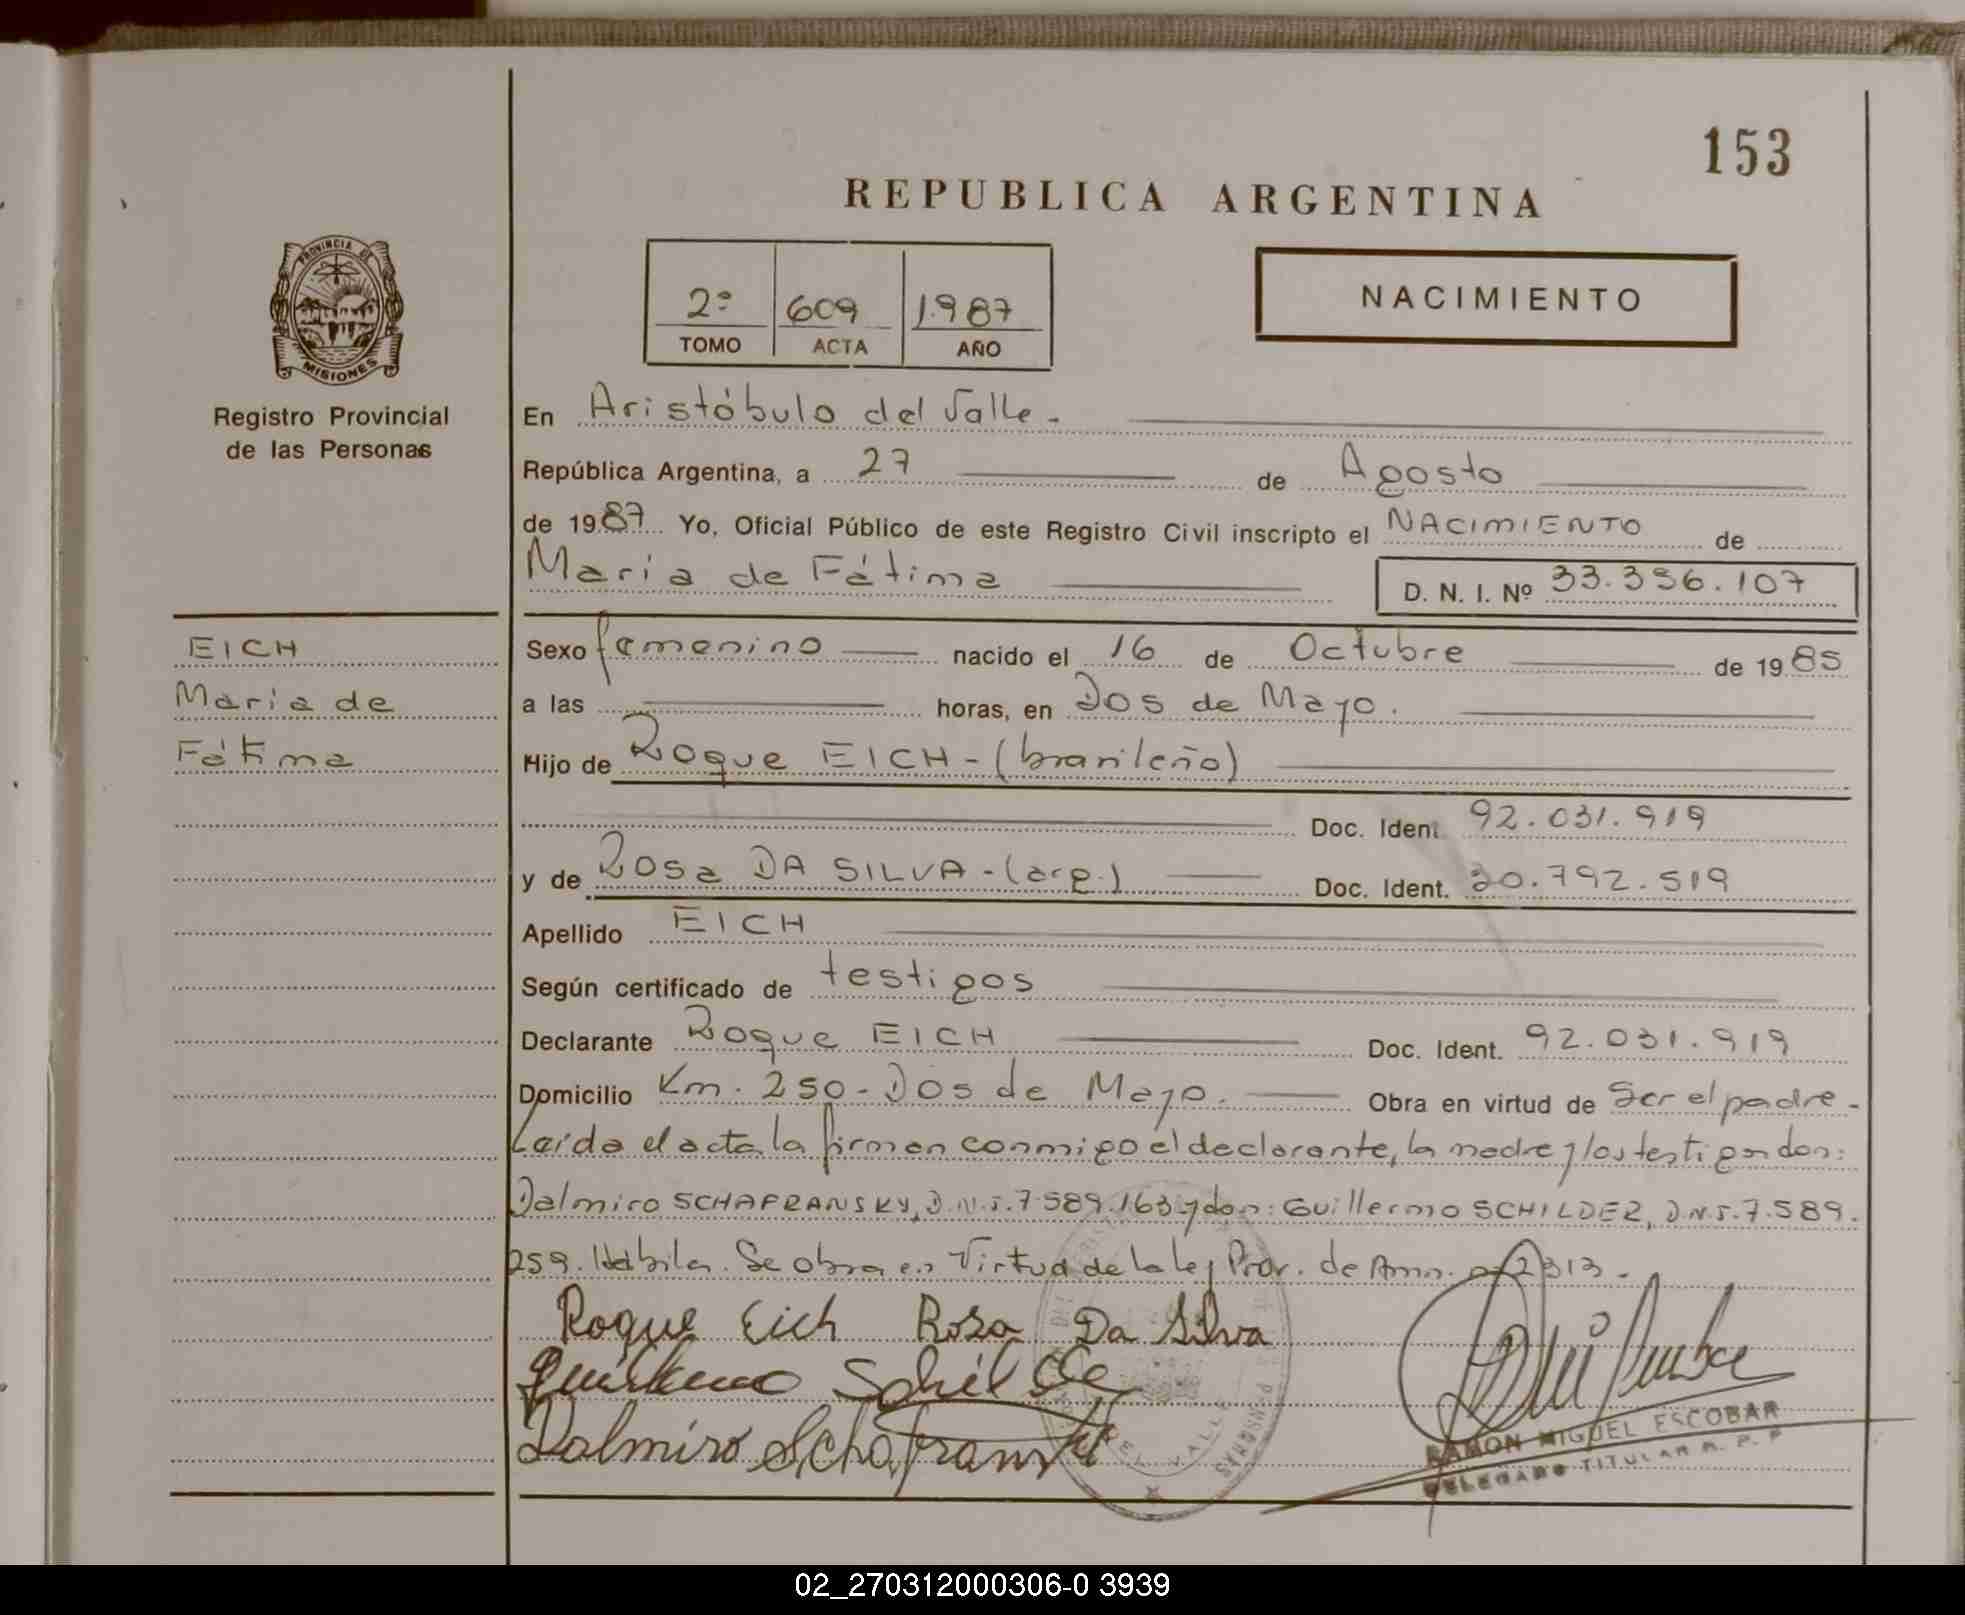 153
REPUBLICA ARGENTINA
PROVINCIA DE
MISIONES
Registro Provincial
de las Personas
2º 609 1.987
TOMO ACTA AÑO
NACIMIENTO
En Aristóbulo del Valle.-
República Argentina, a 27 de Agosto
de 1987 Yo, Oficial Público de este Registro Civil inscripto el NACIMIENTO de
María de Fátima D. N. I. Nº 33.396.107
EICH
María de
Fátima
Sexo femenino nacido el 16 de Octubre de 1985
a las horas, en Dos de Mayo.
Hijo de Roque EICH-(brasileño)
Doc. Ident. 92.031.919
y de Rosa DA SILVA-(arg.) Doc. Ident. 30.792.519
Apellido EICH
Según certificado de testigos
Declarante Roque EICH Doc. Ident. 92.031.919
Domicilio Km. 250-Dos de Mayo. Obra en virtud de ser el padre-
Leída el acta la firman conmigo el declarante, la madre y los testigos don:
Dalmiro SCHAFRANSKY, D.N.I. 7.589.163 y don: Guillermo SCHILDER, D.N.I. 7.589.
259. Hábiles. Se obra en Virtud de la ley Prov. de Amn. nº 2313.-
Roque Eich Rosa Da Silva
Guillermo Schilde
Dalmiro Schafransk
DEL VALLE
PERSONAS
RAMON MIGUEL ESCOBAR
DELEGADO TITULAR R. P. P
02_270312000306-0 3939